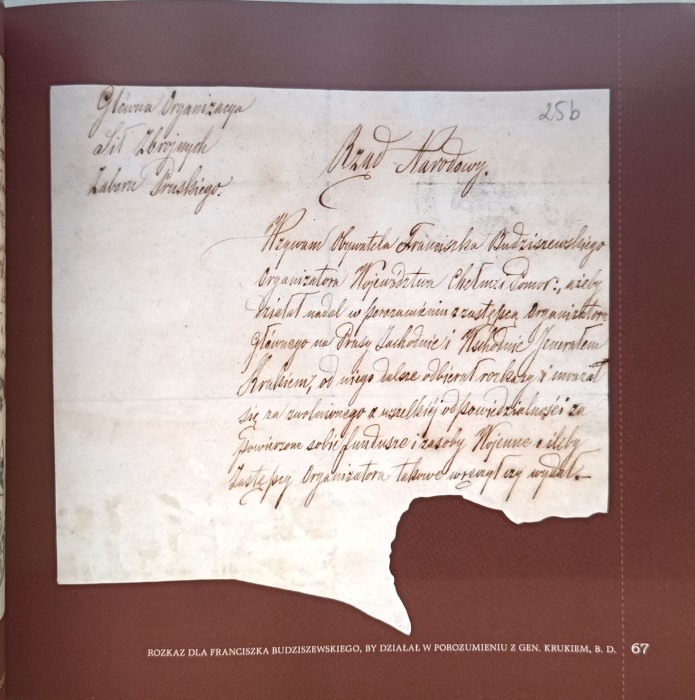 Główna Organizacya
Sił Zbrojnych
Zaboru Pruskiego.
25b
Rząd Narodowy.
Wzywam Obywatela Franciszka Budziszewskiego
Organizatora Województwa Chełmz: i Pomor:, ażeby
działał nadal w porozumieniu z zastępcą Organizatora
Głównego na Prusy Zachodnie i Wschodnie Jenerałem
Krukiem, od niego dalsze odbierał rozkazy i uważał
się za zwolnionego z wszelkiej odpowiedzialności za
powierzone sobie fundusze i zasoby Wojenne o ileby
Zastępcy Organizatora takowe wręczył czy wydał.—
ROZKAZ DLA FRANCISZKA BUDZISZEWSKIEGO, BY DZIAŁAŁ W POROZUMIENIU Z GEN. KRUKIEM, B. D. 67